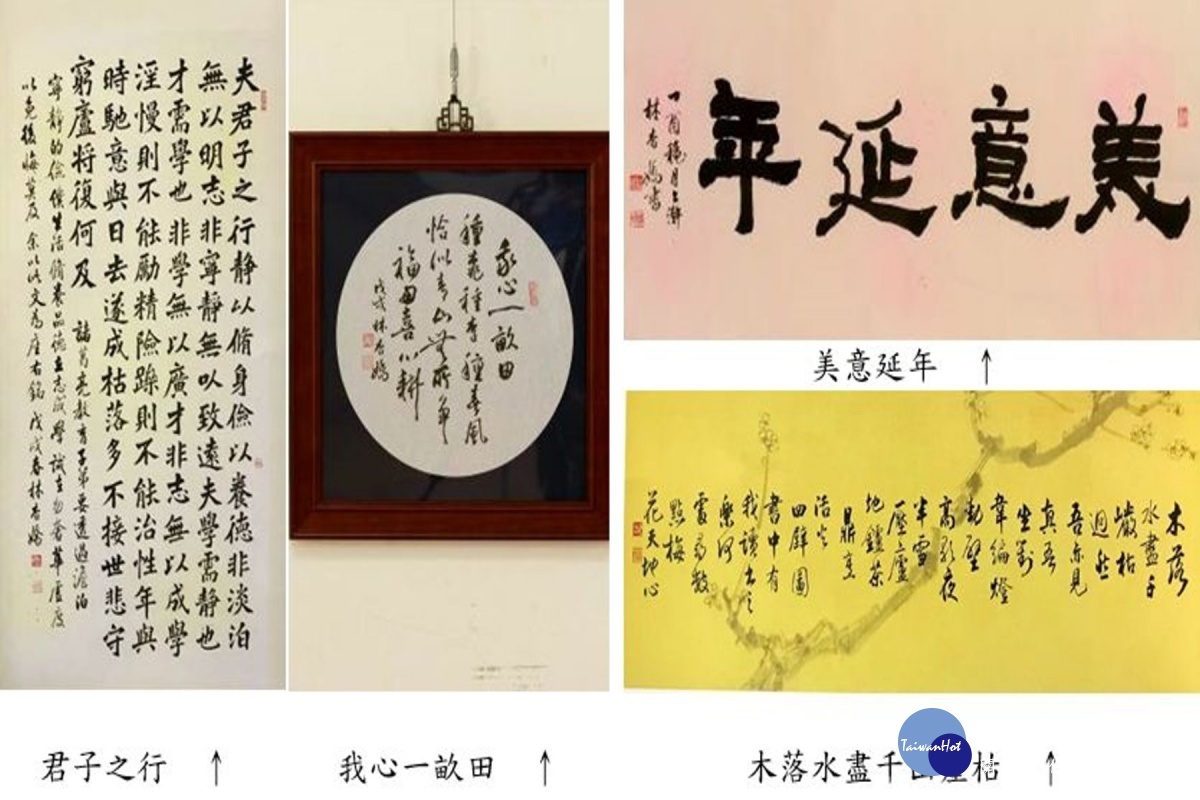 夫君子之行静以脩身儉以養德非淡泊
無以明志非寧靜無以致遠夫學需静也
才需學也非學無以廣才非志無以成學
淫慢則不能勵精險躁則不能治性年與
時馳意與日去遂成枯落多不接世悲守
窮廬將復何及
諸葛亮教育子弟要透過澹泊
寧靜的儉僕生活脩養品德立志成學誡主勿奢華虛度
以免後悔莫及 余以此文為座右銘 戊戌春林杏嬌
我心一畝田
種桃種李種春風
恰似青山無所爭
福田喜心耕
戊戌林杏嬌
美意延年
丁酉穐月上澣
林杏嬌書
美意延年 ↑
木落
水盡千
巖枯
迥然
吾亦見
真吾
坐對
韋編燈
動壁
高歌夜
半雪
壓廬
地鑪茶
鼎烹
活火
四壁圖
書中有
我讀書之
樂何
處尋數
點梅
花天地心
君子之行 ↑
我心一畝田 ↑
木落水盡千 枯 ↑
TaiwanHot